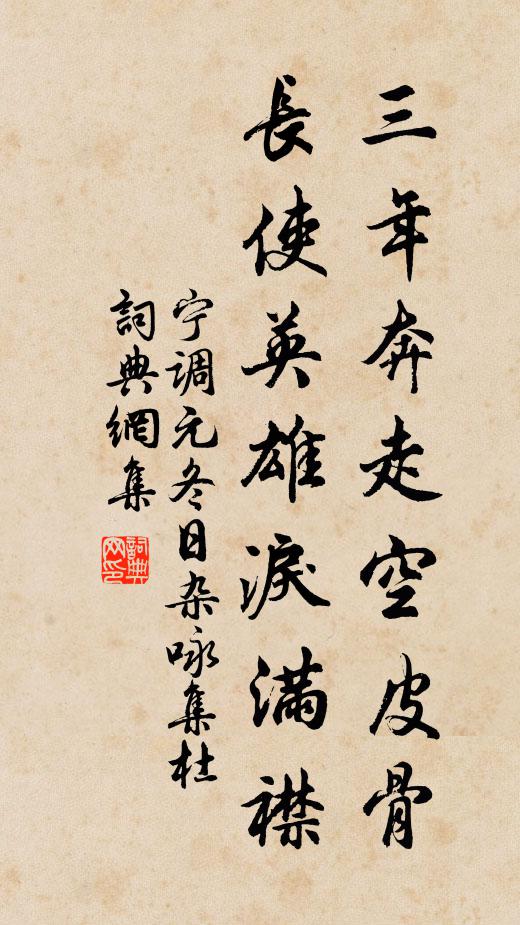 三年奔走空皮骨
長使英雄淚滿襟
宁调元冬日杂咏集杜
詞典網集
詞典网印